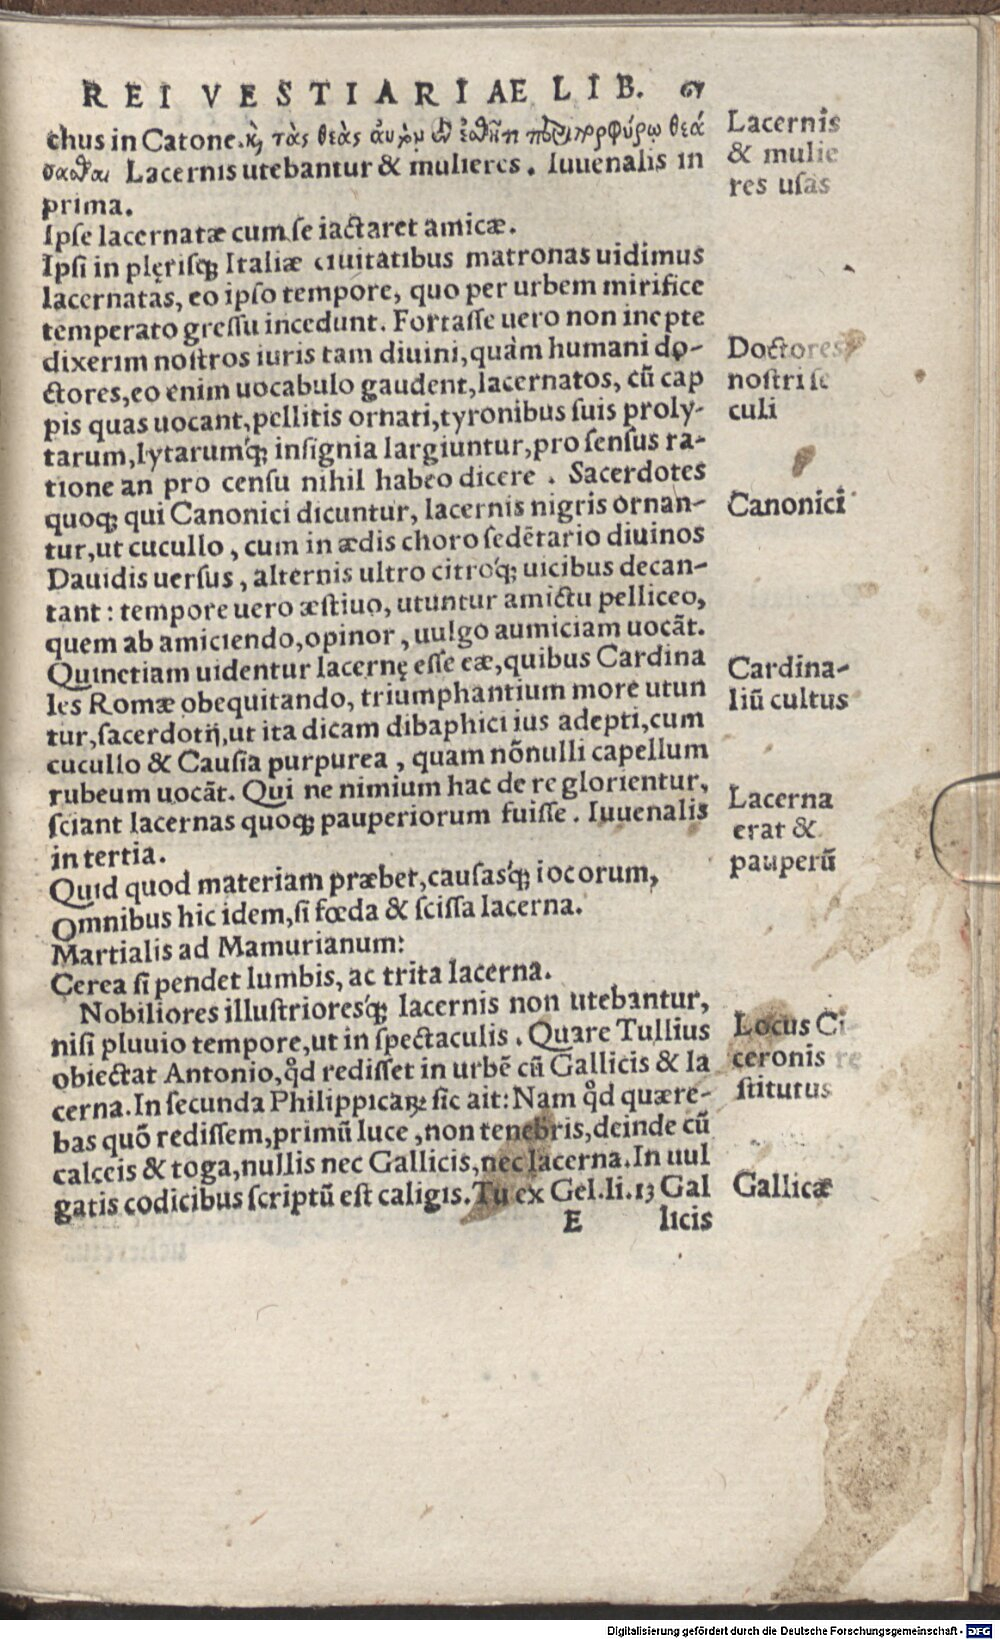 REI VESTIARIAE LIB. 67
chus in Catone. κ, τὰς θεὰς ἀυτὸν ἐν ἐσθῆτι θεά
σασθαι Lacernis utebantur & mulieres. Iuuenalis in
prima.
Ipse lacernatæ cum se iactaret amicæ.
Ipsi in plęrisq; Italiæ ciuitatibus matronas uidimus
lacernatas, eo ipso tempore, quo per urbem mirifice
temperato gressu incedunt. Fortasse uero non inepte
dixerim nostros iuris tam diuini, quàm humani do-
ctores, eo enim uocabulo gaudent, lacernatos, cũ cap
pis quas uocant, pellitis ornati, tyronibus suis proly-
tarum, lytarumq́; insignia largiuntur, pro sensus ra-
tione an pro censu nihil habeo dicere. Sacerdotes
quoq; qui Canonici dicuntur, lacernis nigris ornan-
tur, ut cucullo, cum in ædis choro sedẽtario diuinos
Dauidis uersus, alternis ultro citroq́; uicibus decan-
tant: tempore uero æstiuo, utuntur amictu pelliceo,
quem ab amiciendo, opinor, uulgo aumiciam uocãt.
Quinetiam uidentur lacernę esse eæ, quibus Cardina
les Romæ obequitando, triumphantium more utun
tur, sacerdotij, ut ita dicam dibaphici ius adepti, cum
cucullo & Causia purpurea, quam nõnulli capellum
rubeum uocãt. Qui ne nimium hac de re glorientur,
sciant lacernas quoq; pauperiorum fuisse. Iuuenalis
in tertia.
Quid quod materiam præbet, causasq́; iocorum,
Omnibus hic idem, si fœda & scissa lacerna.
Martialis ad Mamurianum:
Cerea si pendet lumbis, ac trita lacerna.
Nobiliores illustrioresq́; lacernis non utebantur,
nisi pluuio tempore, ut in spectaculis. Quare Tullius
obiectat Antonio, qd̉ redisset in urbẽ cũ Gallicis & la
cerna. In secunda Philippicaꝝ sic ait: Nam qd̉ quære-
bas quõ redissem, primũ luce, non tenebris, deinde cũ
calceis & toga, nullis nec Gallicis, nec lacerna. In uul
gatis codicibus scriptũ est caligis. Tu ex Gel. li. 13 Gal
E licis
Lacernis
& mulie
res usas
Doctores
nostri se
culi
Canonici
Cardina-
liũ cultus
Lacerna
erat &
pauperũ
Locus Ci-
ceronis re
stitutus
Gallicæ
Digitalisierung gefördert durch die Deutsche Forschungsgemeinschaft - DFG